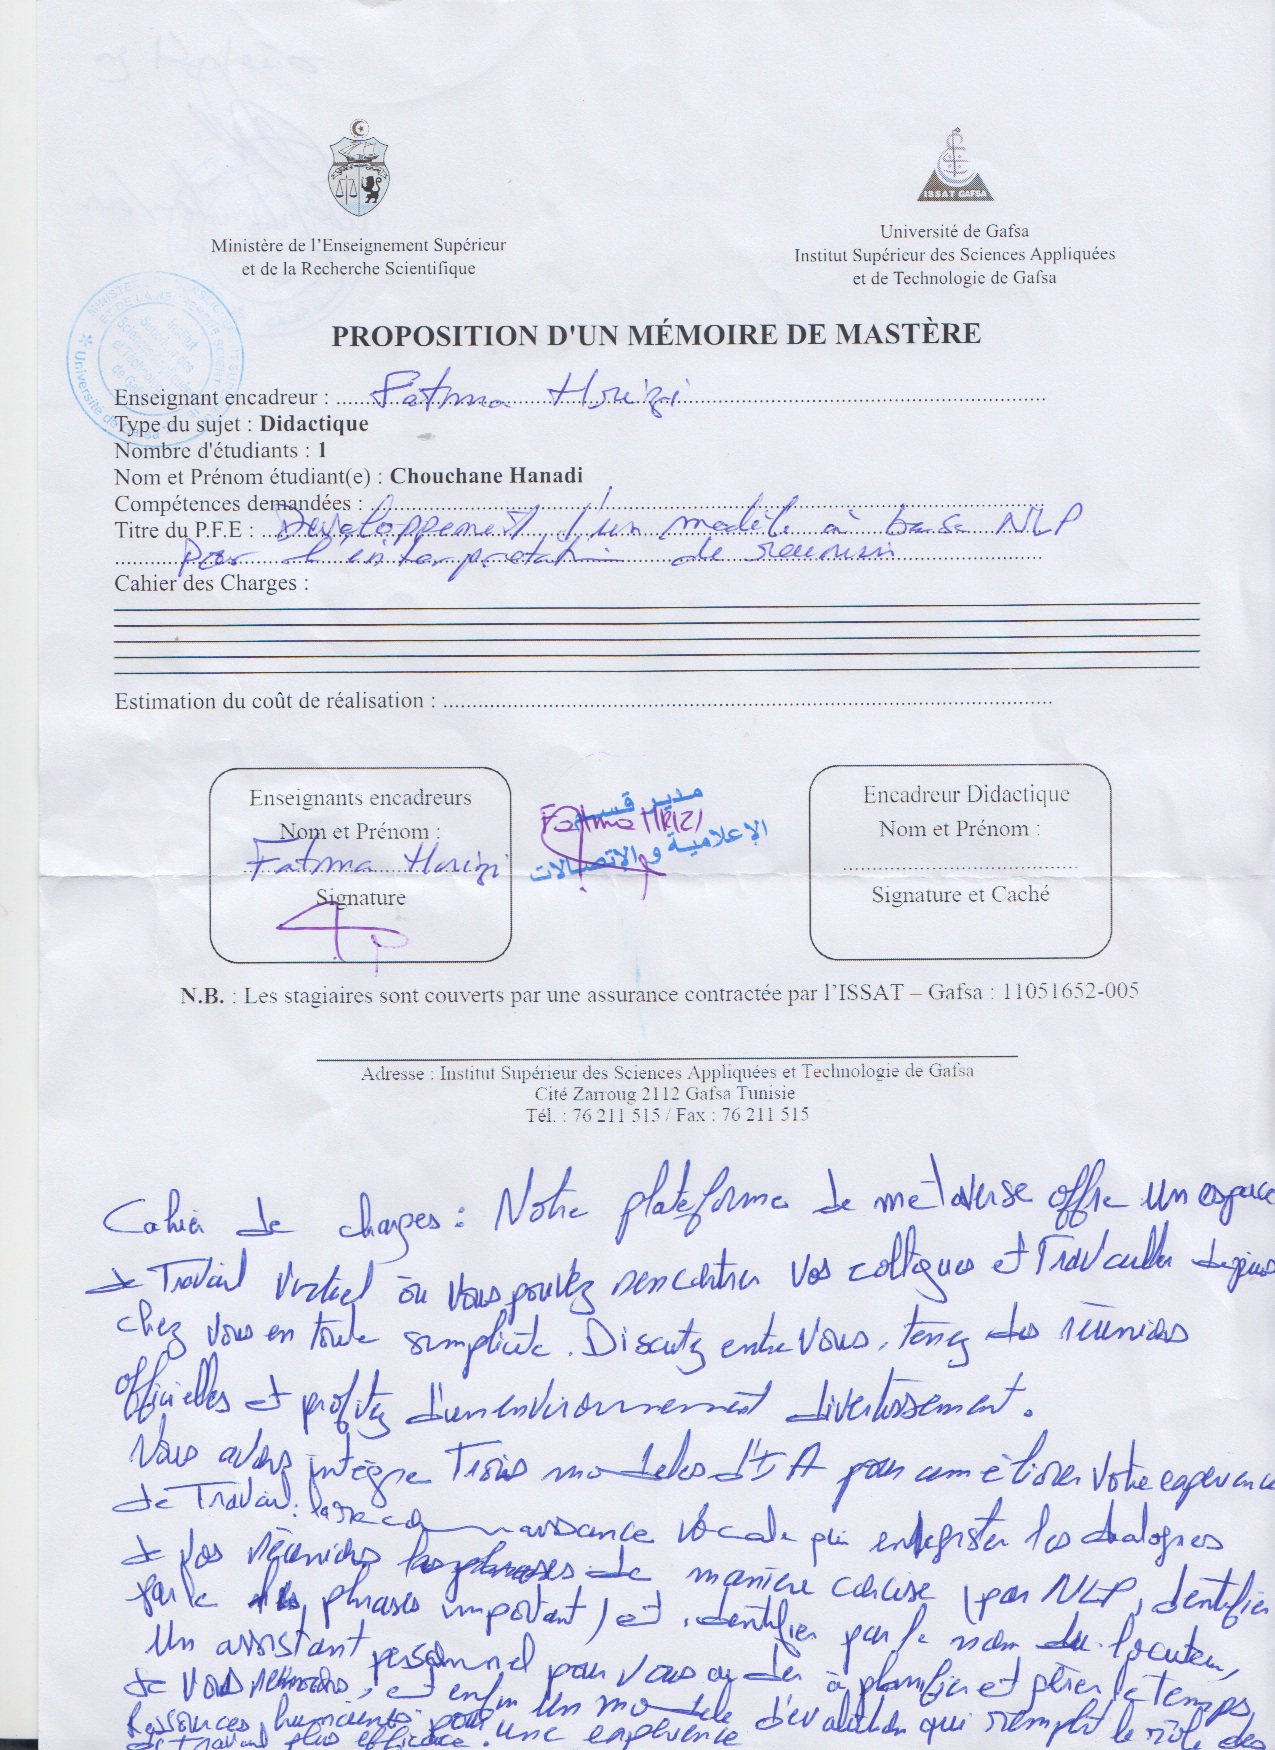 ISSAT GAFSA
Ministère de l'Enseignement Supérieur
et de la Recherche Scientifique
Université de Gafsa
Institut Supérieur des Sciences Appliquées
et de Technologie de Gafsa
PROPOSITION D'UN MÉMOIRE DE MASTÈRE
Enseignant encadreur : Fatma Hrizi
Type du sujet : Didactique
Nombre d'étudiants : 1
Nom et Prénom étudiant(e) : Chouchane Hanadi
Compétences demandées :
Titre du P.F.E : Developpement d'un modèle à base NLP
pour l'interprétation de reunion
Cahier des Charges :
Estimation du coût de réalisation :
Enseignants encadreurs
Nom et Prénom :
Fatma Hrizi
Signature
مدير قسم
Fatma HRIZI
الإعلامية و الاتصالات
Encadreur Didactique
Nom et Prénom :
Signature et Caché
N.B. : Les stagiaires sont couverts par une assurance contractée par l'ISSAT – Gafsa : 11051652-005
Adresse : Institut Supérieur des Sciences Appliquées et Technologie de Gafsa
Cité Zarroug 2112 Gafsa Tunisie
Tél. : 76 211 515 / Fax : 76 211 515
Cahier de charges : Notre plateforme de metaverse offre un espace
de Travail virtuel où vous pouvez rencontrer vos collègues et Travailler depuis
chez vous en toute simplicité. Discutez entre vous, tenez des réunions
officielles et profitez d'un environnement divertissement.
Nous avons intégré Trois modeles d'IA pour améliorer votre experience
de Travail : la reconnaissance vocale qui enregistre les dialogues
de vos réunions de manière concise (par NLP, identifier
par le phrases important) et identifier par le nom du locuteur,
Un assistant personnel pour vous aider à planifier et gérer le temps
de vous réunions, et enfin un modele d'évaluation qui remplit le rôle des
Ressources humaines pour une expérience
de travail plus efficace.